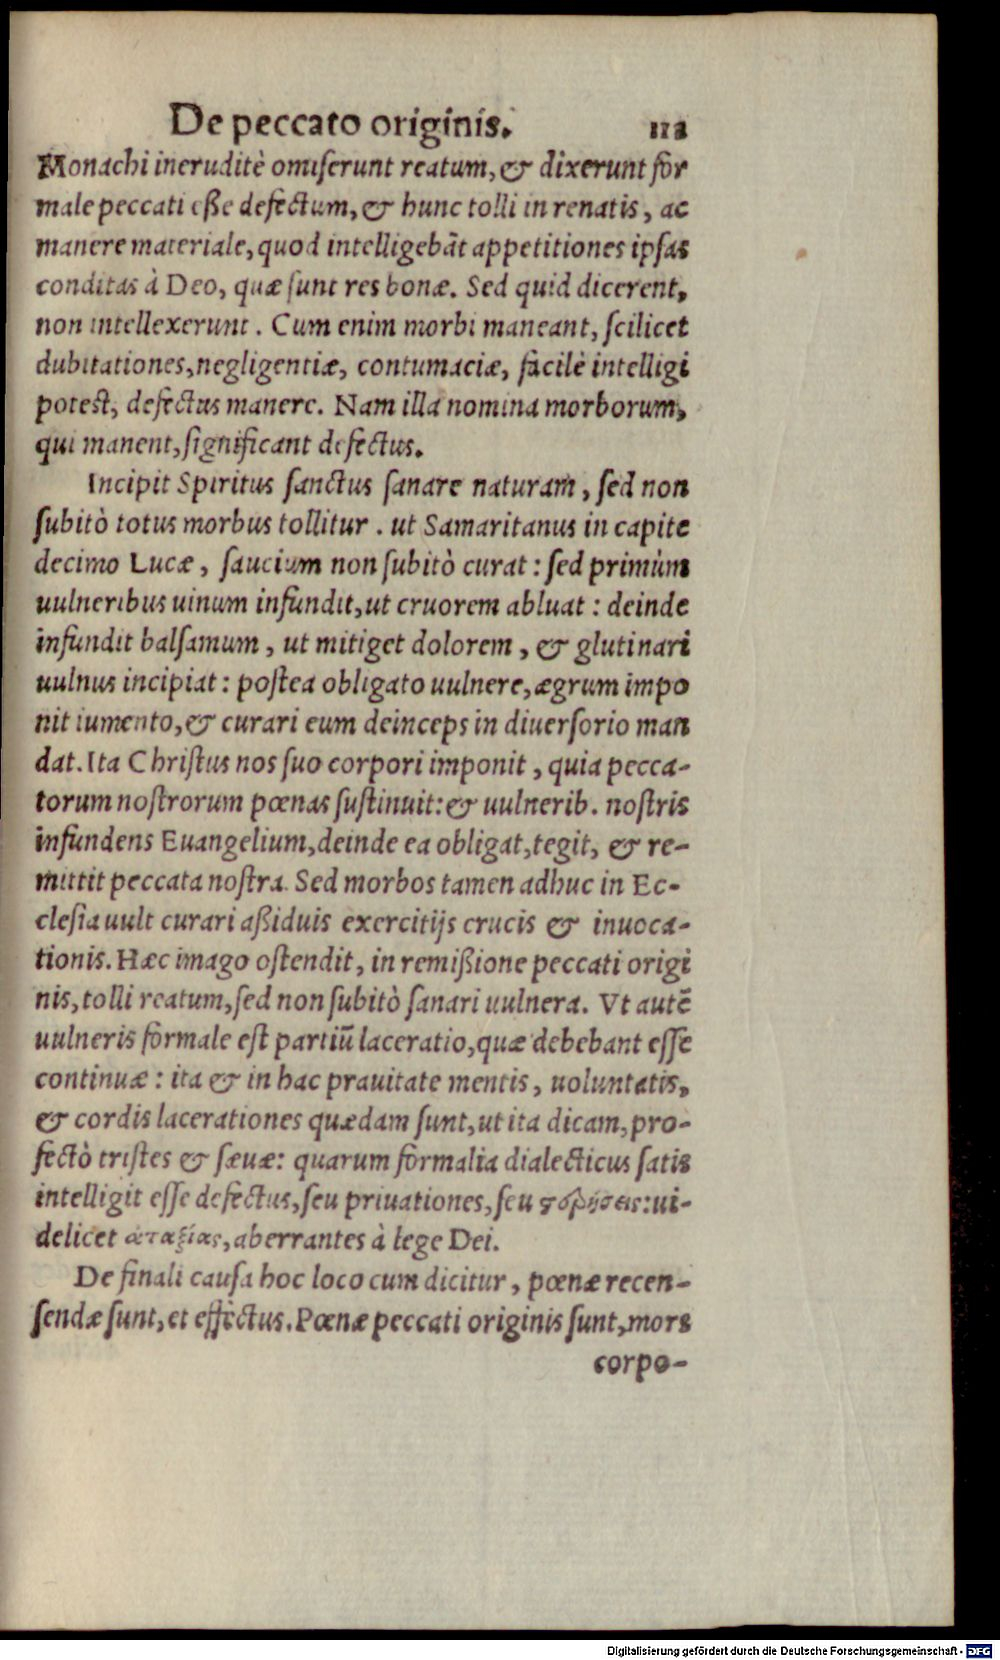 De peccato originis. 112
Monachi ineruditè omiserunt reatum, & dixerunt for
male peccati eße defectum, & hunc tolli in renatis, ac
manere materiale, quod intelligebāt appetitiones ipsas
conditas à Deo, quæ sunt res bonæ. Sed quid dicerent,
non intellexerunt. Cum enim morbi maneant, scilicet
dubitationes, negligentiæ, contumaciæ, facilè intelligi
potest, defectus manere. Nam illa nomina morborum,
qui manent, significant defectus.
Incipit Spiritus sanctus sanare naturam, sed non
subitò totus morbus tollitur. ut Samaritanus in capite
decimo Lucæ, saucium non subitò curat: sed primùm
uulneribus uinum infundit, ut cruorem abluat: deinde
infundit balsamum, ut mitiget dolorem, & glutinari
uulnus incipiat: postea obligato uulnere, ægrum impo
nit iumento, & curari eum deinceps in diuersorio man
dat. Ita Christus nos suo corpori imponit, quia pecca-
torum nostrorum pœnas sustinuit: & uulnerib. nostris
infundens Euangelium, deinde ea obligat, tegit, & re-
mittit peccata nostra. Sed morbos tamen adhuc in Ec-
clesia uult curari aßiduis exercitijs crucis & inuoca-
tionis. Hæc imago ostendit, in remißione peccati origi
nis, tolli reatum, sed non subitò sanari uulnera. Vt autē
uulneris formale est partiū laceratio, quæ debebant esse
continuæ: ita & in hac prauitate mentis, uoluntatis,
& cordis lacerationes quædam sunt, ut ita dicam, pro-
fectò tristes & sæuæ: quarum formalia dialecticus satis
intelligit esse defectus, seu priuationes, seu στέρησεις: ui-
delicet ἀταξίας, aberrantes à lege Dei.
De finali causa hoc loco cum dicitur, pœnæ recen-
sendæ sunt, et effectus. Pœnæ peccati originis sunt, mors
corpo-
Digitalisierung gefördert durch die Deutsche Forschungsgemeinschaft - DFG